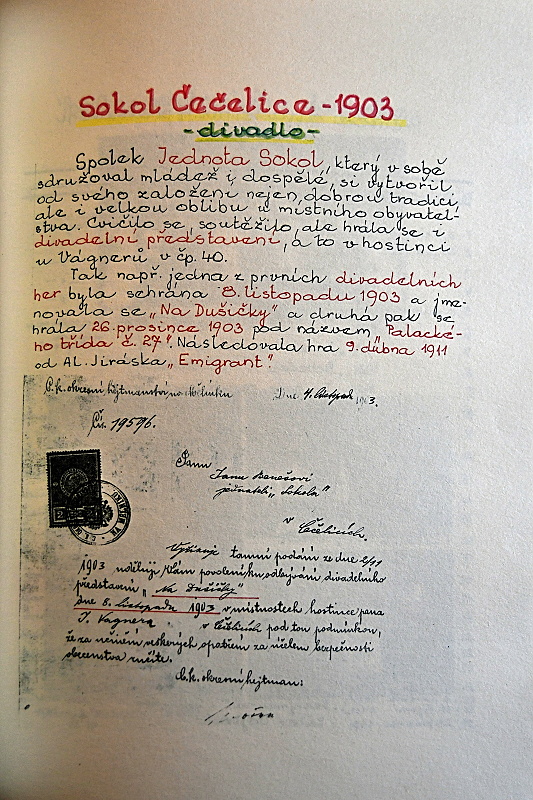 Sokol Čečelice - 1903
- divadlo -
Spolek Jednota Sokol, který v sobě
sdružoval mládež i dospělé, si vytvořil
od svého založení nejen dobrou tradici,
ale i velkou oblibu u místního obyvatel-
stva. Cvičilo se, soutěžilo, ale hrála se i
divadelní představení, a to v hostinci
u Vágnerů v čp. 40.
Tak např. jedna z prvních divadelních
her byla sehrána 8. listopadu 1903 a jme-
novala se „Na Dušičky" a druhá pak se
hrála 26. prosince 1903 pod názvem „Palacké-
ho třída č. 27". Následovala hra 9. dubna 1911
od Al. Jiráska „Emigrant".
C.k. okresní hejtmanství na Mělníku Dne 4. listopadu 1903.
Čís. 19596.
Panu
Janu Benešovi
jednateli „Sokola"
v Čečelicích.
Vyřizuje tamní podání ze dne 2/11
1903 uděluji Vám povolení ku odbývání divadelního
představení „Na Dušičky"
dne 8. listopadu 1903 v místnostech hostince pana
J. Vagnera v Čečelicích pod tou podmínkou,
že za učinění veškerých opatření za účelem bezpečnosti
obecenstva ručíte.
C.k. okresní hejtman: